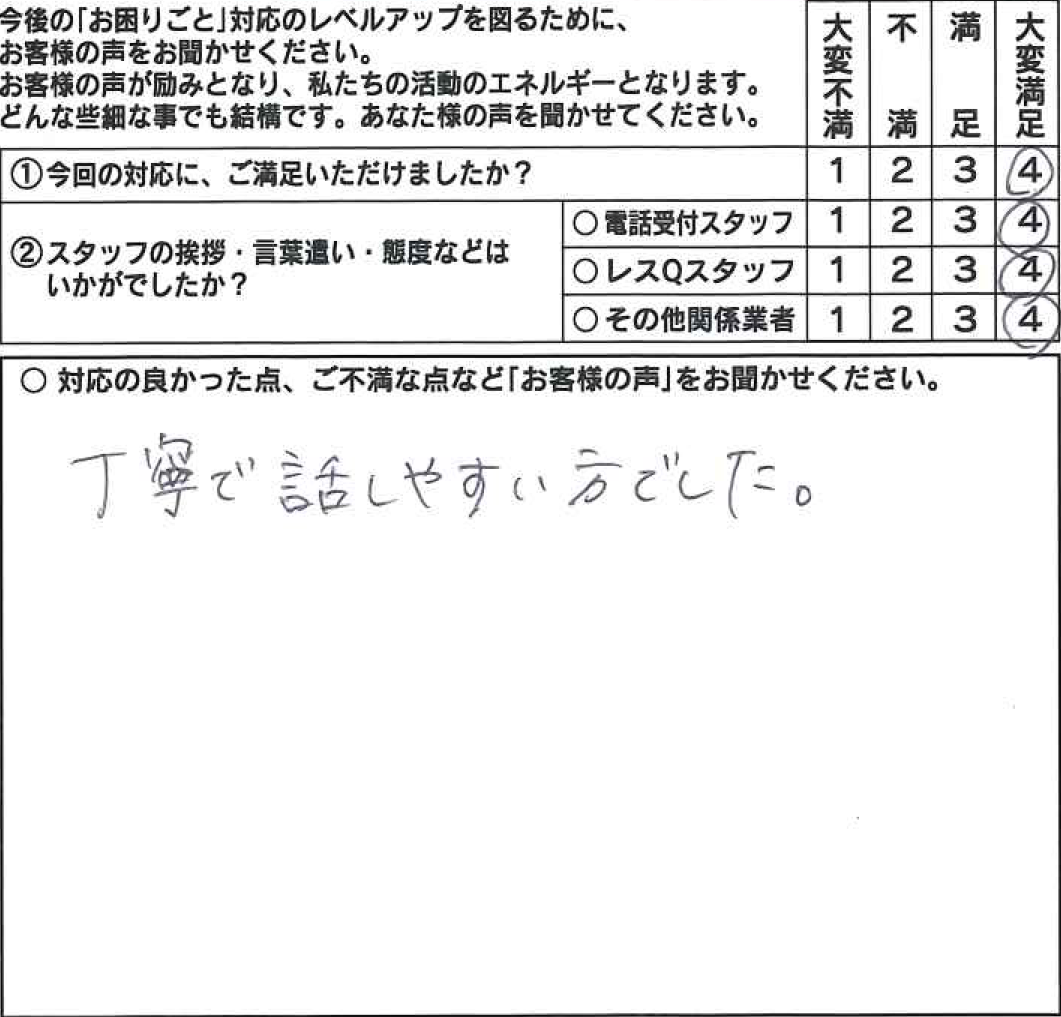 今後の「お困りごと」対応のレベルアップを図るために、
お客様の声をお聞かせください。
お客様の声が励みとなり、私たちの活動のエネルギーとなります。
どんな些細な事でも結構です。あなた様の声を聞かせてください。
大変不満 不満 満足 大変満足
①今回の対応に、ご満足いただけましたか？ 1 2 3 4
②スタッフの挨拶・言葉遣い・態度などは
いかがでしたか？
○電話受付スタッフ 1 2 3 4
○レスQスタッフ 1 2 3 4
○その他関係業者 1 2 3 4
○ 対応の良かった点、ご不満な点など「お客様の声」をお聞かせください。
丁寧で話しやすい方でした。